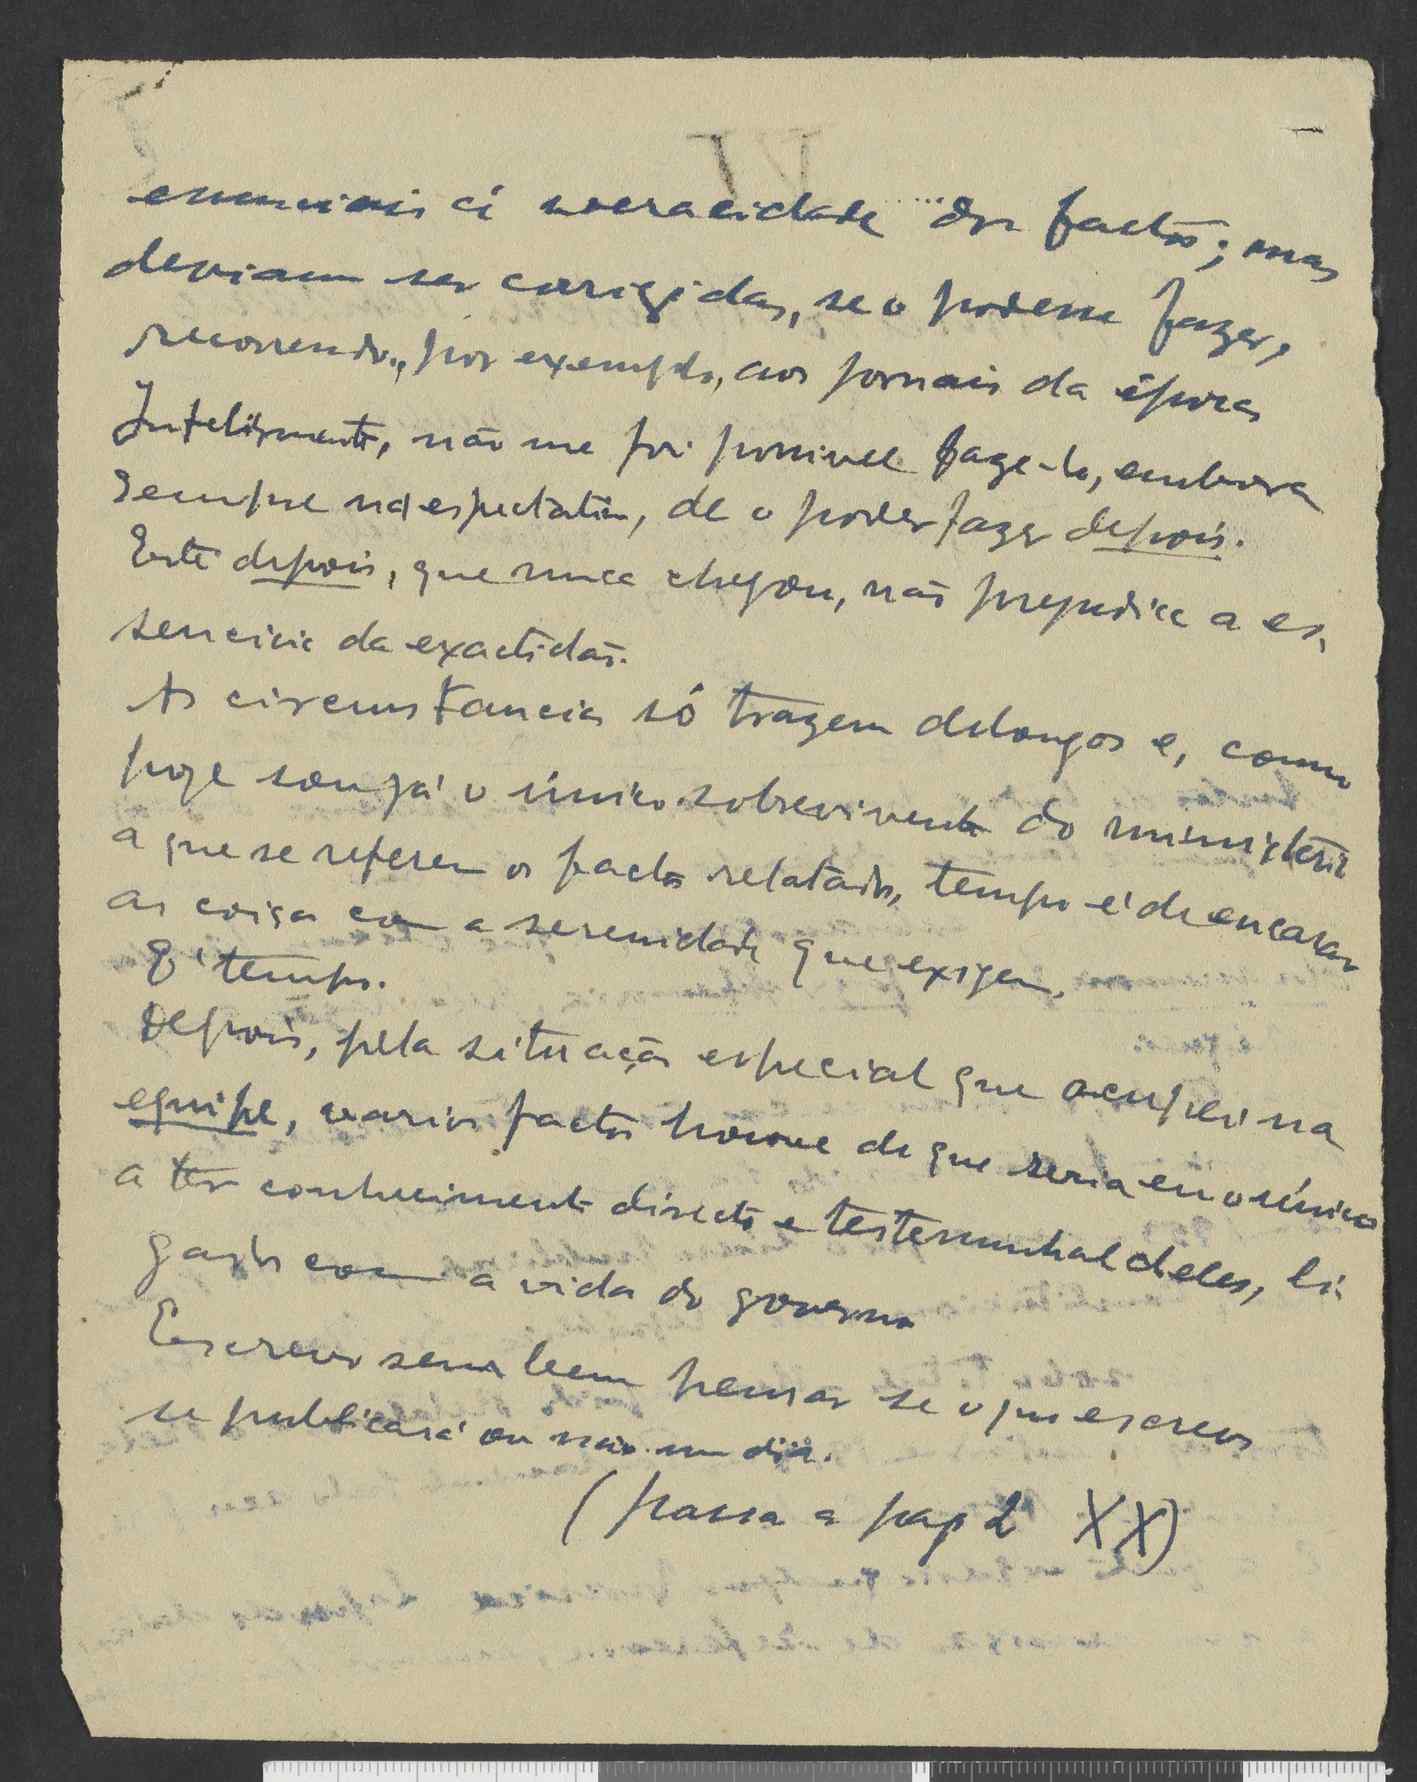 VI
essenciais á veracidade dos factos; mas
deviam ser corrigidas, se o podesse fazer,
recorrendo, por exemplo, aos jornais da época
Infelismente, não me foi possivel faze-lo, embora
sempre na espectativa, de o poder fazer depois.
Este depois, que nunca chegou, não prejudica a es,
sencia da exactidão.
As circumstancias só trazem delongas e, como
hoje sou já o único sobrevivente do ministério
a que se referem os factos relatados, tempo é de encarar
as coisas com a serenidade que exigem.
E' tempo.
Depois, pela situação especial que ocupei na
equipe, varios factos houve de que seria eu o único
a ter conhecimento directo e testemunhal deles, li-
gados com a vida do governo
Escrevo sem bem pensar se o que escrevo
se publicará ou não um dia.
(passa a pag 2 XX)